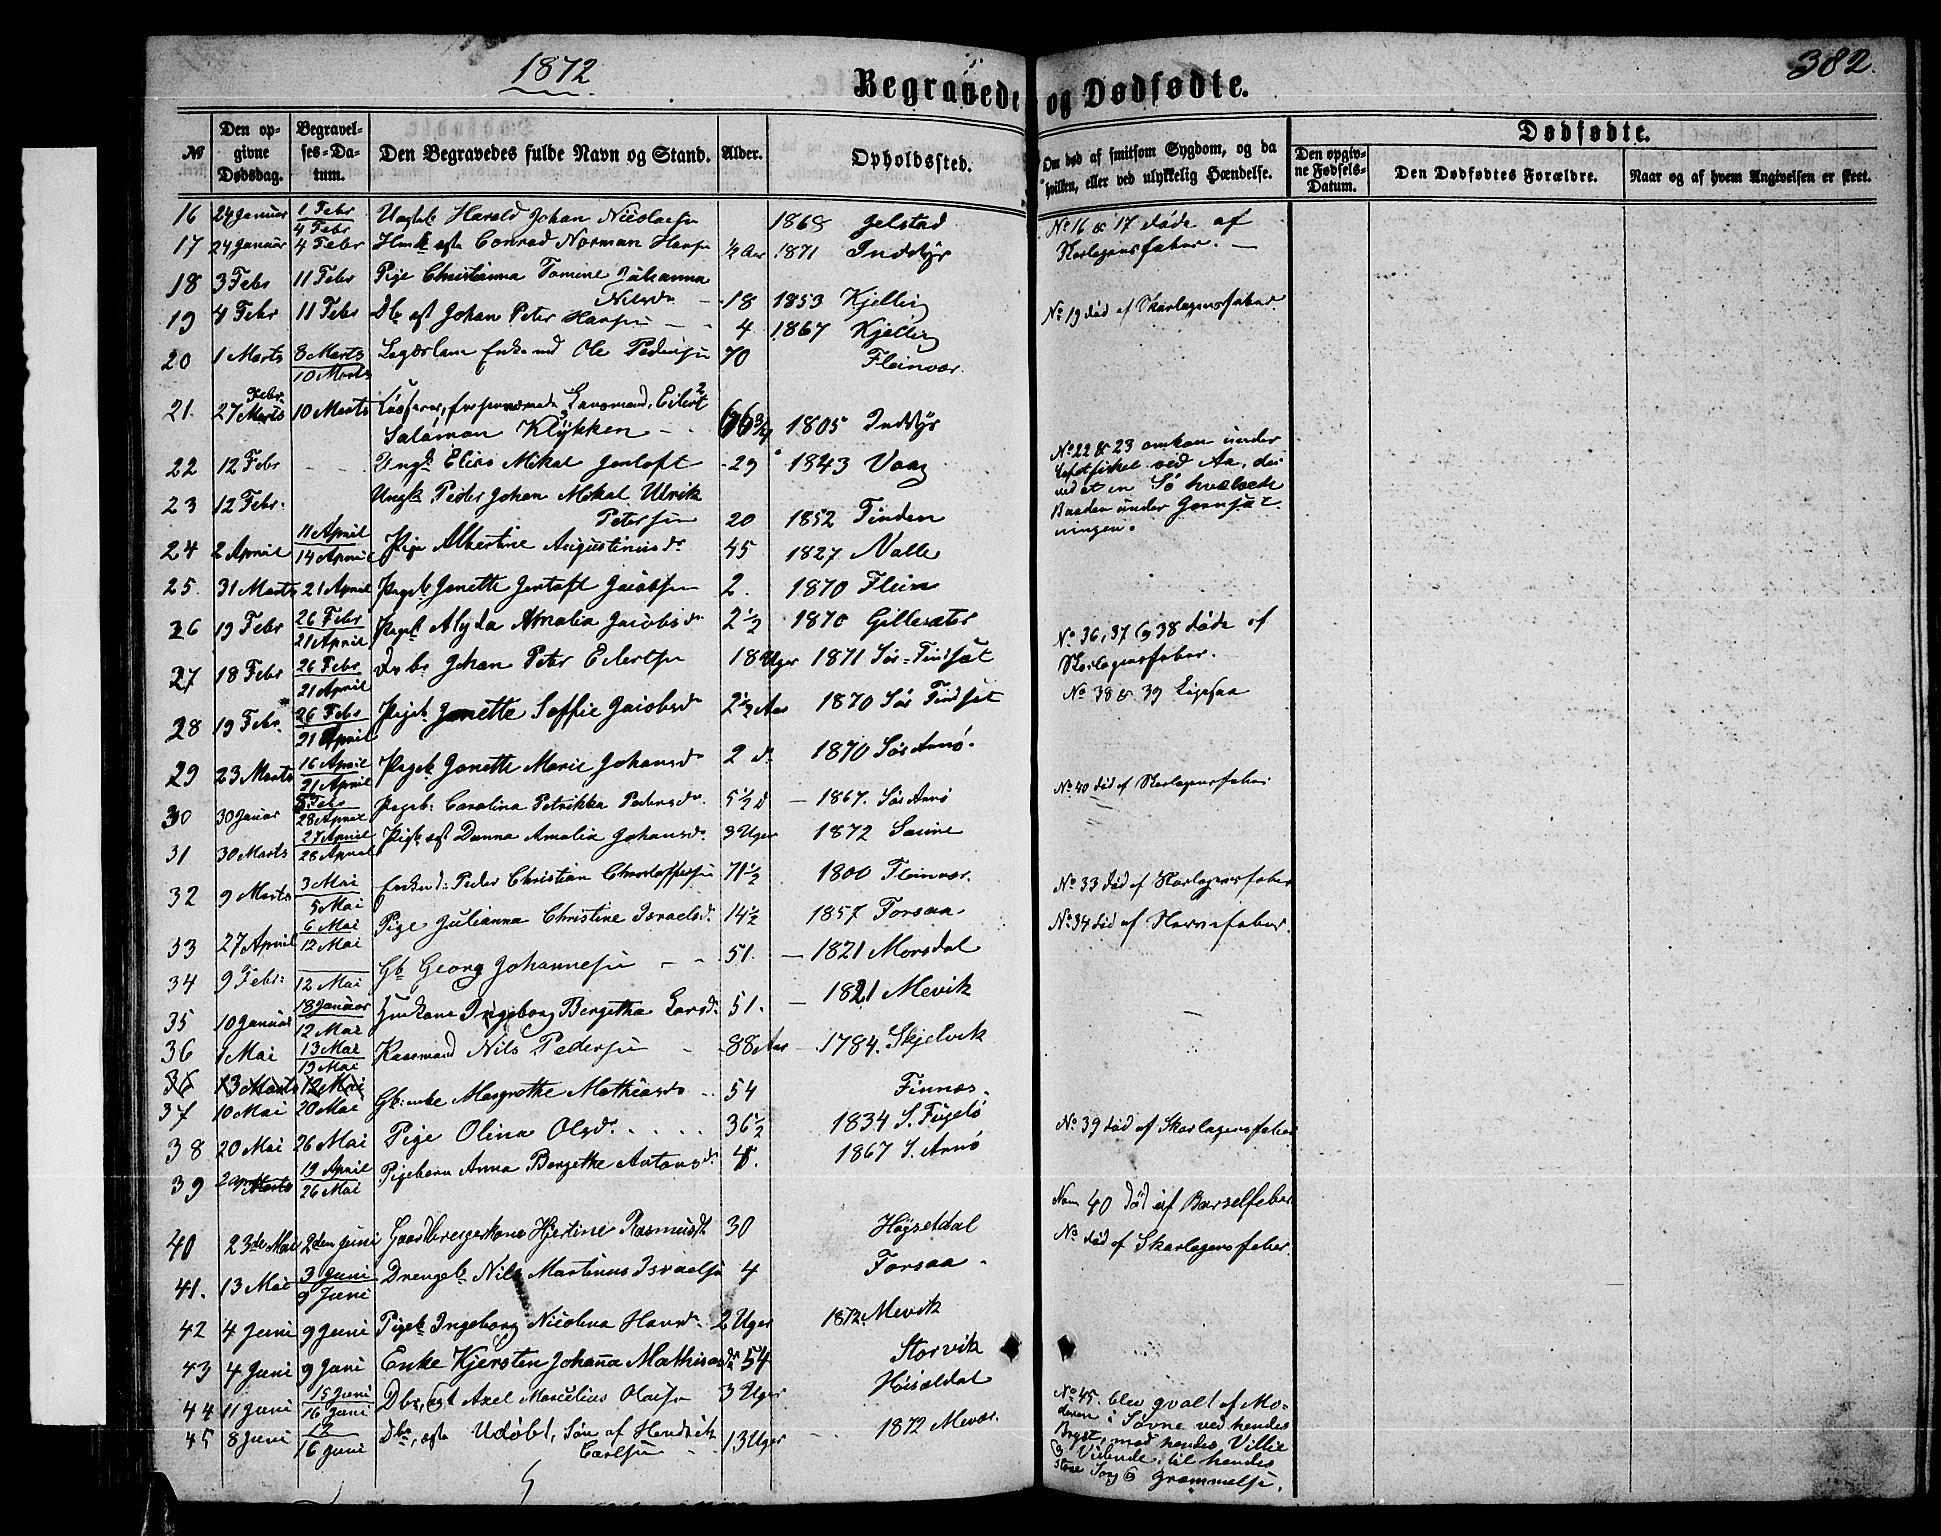 1872
382.
Begravede og Dødfødte.
№
Den opgivne Dødsdag.
Begravelses-Datum.
Den Begravedes fulde Navn og Stand.
Alder.
Opholdssted.
Om død af smitsom Sygdom, og da hvilken, eller ved ulykkelig Hændelse.
Dødfødte.
Den opgivne Fødsels-Datum.
Den Dødfødtes Forældre.
Naar og af hvem Angivelsen er skeet.
16 24 Januar 1 Febr 4 Febr Harald Johan Nicolaisen 1868 Gjelstad
No 16 & 17 døde af
17 24 Januar 4 Febr Conrad Norman Hansen ½ Aar 1871 Inddyr
Skarlagensfeber. —
18 3 Febr 11 Febr Pige Christianna Tomine Julianna
Nilsdr 18 1853 Kjelling
19 4 Febr 11 Febr Db ægt Johan Peter Hansen 4 1867 Kjelling
No 19 død af Skarlagensfeber
20 1 Marts 8 Marts 10 Marts Lægdslem Enkemd Ole Pedersen 70 Fleinvær.
21. 27 Febr. 10 Marts Eilert
Salamon Klykken 66 1805 Inddyr
22 12 Febr Ungk Elias Mikal Jentoft 29 1843 Vaag
No 22 & 23 omkom under
Lofotfisket ved Aa, der
23 12 Febr. Ungk Peder Johan Mikal Ulrik
ved at en Sø hvælvede
Petersen 20 1852 Finden
Baaden under Garnsæt-
ningen.
24 2 April 11 April 14 April Pige Albertine Augustinusdr 45 1827 Nalle
25. 31 Marts 21 April Pigeb Janette Jentoft Jacobsen 2. 1870 Flein
26 19 Febr 26 Febr 21 April Pigeb Alyda Amalia Jacobsdr 2½ 1870 Gillesæter
No 36, 37 og 38 døde af
27 18 Febr 26 Febr 21 April Johan Peter Eilertsen 18 Uger 1871 Sør-Findsæt
Skarlagensfeber.
No 38 & 39 Ligesaa
28 19 Febr. 26 Febr 21 April Pigeb Janette Soffie Jacobsdr 2½ Aar 1870 Sør Findsæt
29 23 Marts 16 April 21 April Pigeb Janette Marie Johansdr 2 d 1870 Sør Arnø.
30 30 Januar 5 Febr 28 April Pigeb. Carolina Petrikka Pedersdr. 5½ d 1867. Sør Arnø
No. 40 død af Skarlagensfeber
31 30 Marts 27 April 28 April Pigb ægt Danna Amalia Johansdr. 3 Uger 1872 Sauine
32 9 Marts 3 Mai 5 Mai Enkemd: Peder Christian Christoffersen 71½ 1800 Fleinvær.
No. 33 død af Skarlagensfeber
33 27 April 6 Mai 12 Mai Pige Julianna Christine Israelsdr 14½ 1857 Forsaa
No. 34 død af Nervefeber.
34 9 Febr: 12 Mai Gb Georg Johannesen 51. 1821 Morsdal
35 10 Januar 18 Januar 12 Mai Ingeborg Bergetha Larsdr 51. 1821 Mevik
36 1 Mai 13 Mai 19 Mai Kaarmand Nils Pedersen 88 Aar 1784. Skjelvik
36 13 Marts 12 Mai
37 10 Mai 20 Mai Gb: enke Margrethe Mathiasdr 54 Finnæs
38 20 Mai 26 Mai Pige Olina Olsdr. 36½ 1834 S. Fugelø
No. 39 død af Skarlagensfeber
39 29 Marts 19 April 26 Mai Pigebarn Anna Bergethe Antonsdr. 4. 1867 S. Arnø
Nom 40 død af Barselfeber
40 23de Mai 2den Juni Gaardbrugerkone Hjertine Rasmusdt 30 Højsetdal
No død af Skarlagensfeber.
41. 13 Mai 3 Juni 9 Juni Drengeb Nils Martinus Israelsen 4 Forsaa
42 4 Juni 9 Juni Pigeb Ingeborg Nicolina Hansdr 2 Uger 1872 Mevik
43 4 Juni 9 Juni Enke Kjersten Johana Mathisdr 54 Storvik
44 11 Juni 15 Juni 16 Juni Db, ægt Axel Marselius Olausen 3 Uger Høisætdal
45 8 Juni 12 16 Juni Db, ægte Udøbt, Søn af Hendrik
Carlsen 13 Uger 1872 Mevær.
No. 45. blev qvalt af Mo-
deren i Søvne ved hendes
Bryst, mod hendes Villie
& Vidende, til hendes
store Sorg & Græmmelse.